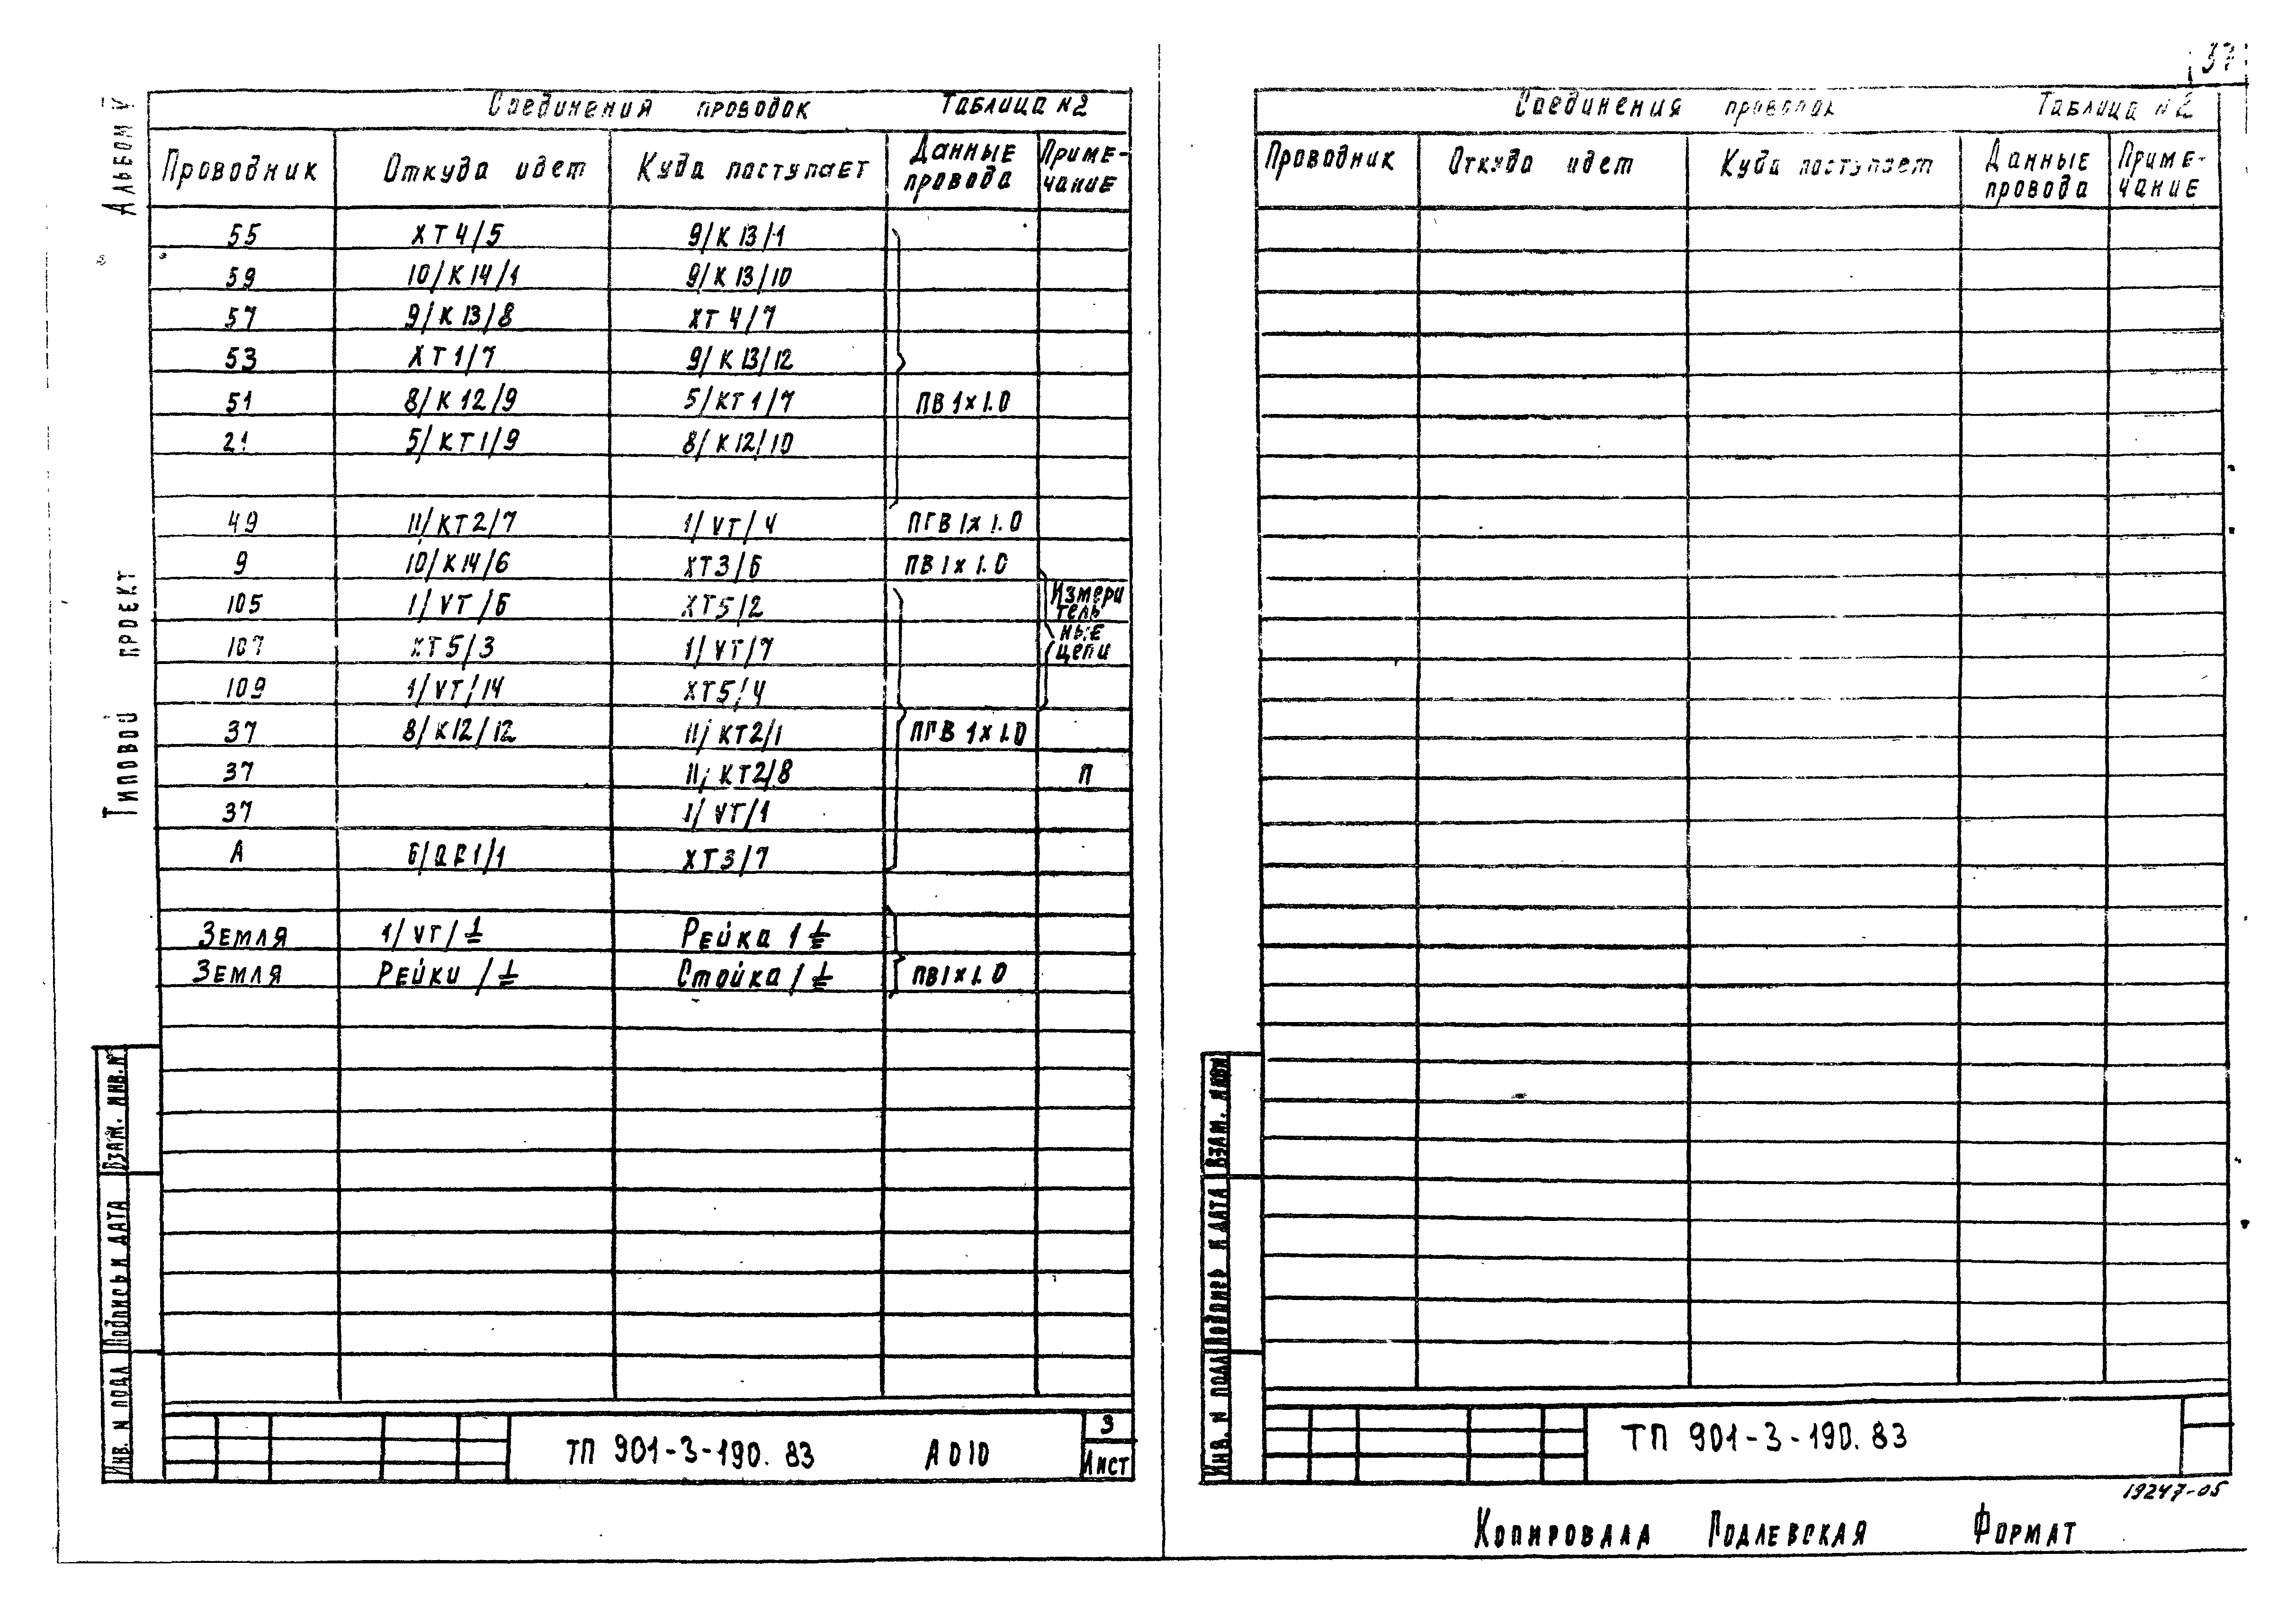 37
Альбом V
Типовой проект
Соединения проводок Таблица N2
Проводник Откуда идет Куда поступает Данные провода Примечание
55 ХТ4/5 9/К13/1
59 10/К14/1 9/К13/10
57 9/К13/8 ХТ4/7
53 ХТ1/7 9/К13/12
51 8/К12/9 5/КТ1/7 ПВ 1х1.0
21 5/КТ1/9 8/К12/10
49 11/КТ2/7 1/VT/4 ПГВ 1х1.0
9 10/К14/6 ХТ3/6 ПВ 1х1.0
105 1/VT/6 ХТ5/2 Измери
тель
107 ХТ5/3 1/VT/7 ные
цепи
109 1/VT/14 ХТ5/4
37 8/К12/12 11/КТ2/1 ПГВ 1х1.0
37 11/КТ2/8 П
37 1/VT/1
А ХТ3/7
Земля 1/VT/⏚ Рейка 1⏚
Земля Рейки /⏚ Стойка /⏚ ПВ1х1.0
Инв. N подл Подпись и дата Взам. инв. N
ТП 901-3-190.83 А010
3
Лист
Соединения проводок Таблица N2
Проводник Откуда идет Куда поступает Данные провода Примечание
Инв. N подл Подпись и дата Взам. инв N
ТП 901-3-190.83
19247-05
Копировала Подлевская Формат